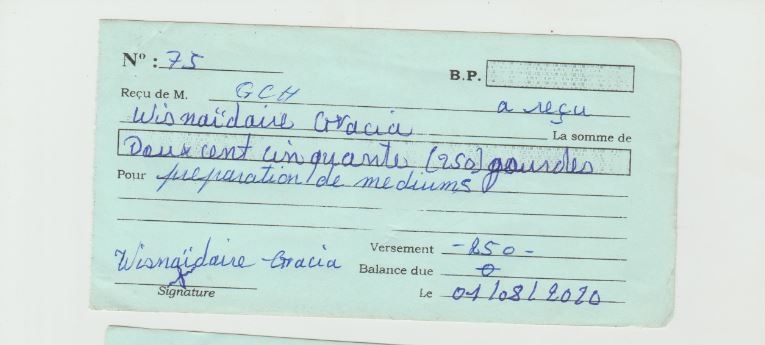 N° : 75
B.P.
Reçu de M. GCH a reçu
Wisnaïdaire Gracia La somme de
Doux cent cinquante (250) gourdes
Pour preparation de mediums
Versement -250-
Wisnaïdaire Gracia
Balance due 0
Signature
Le 01/08/2020